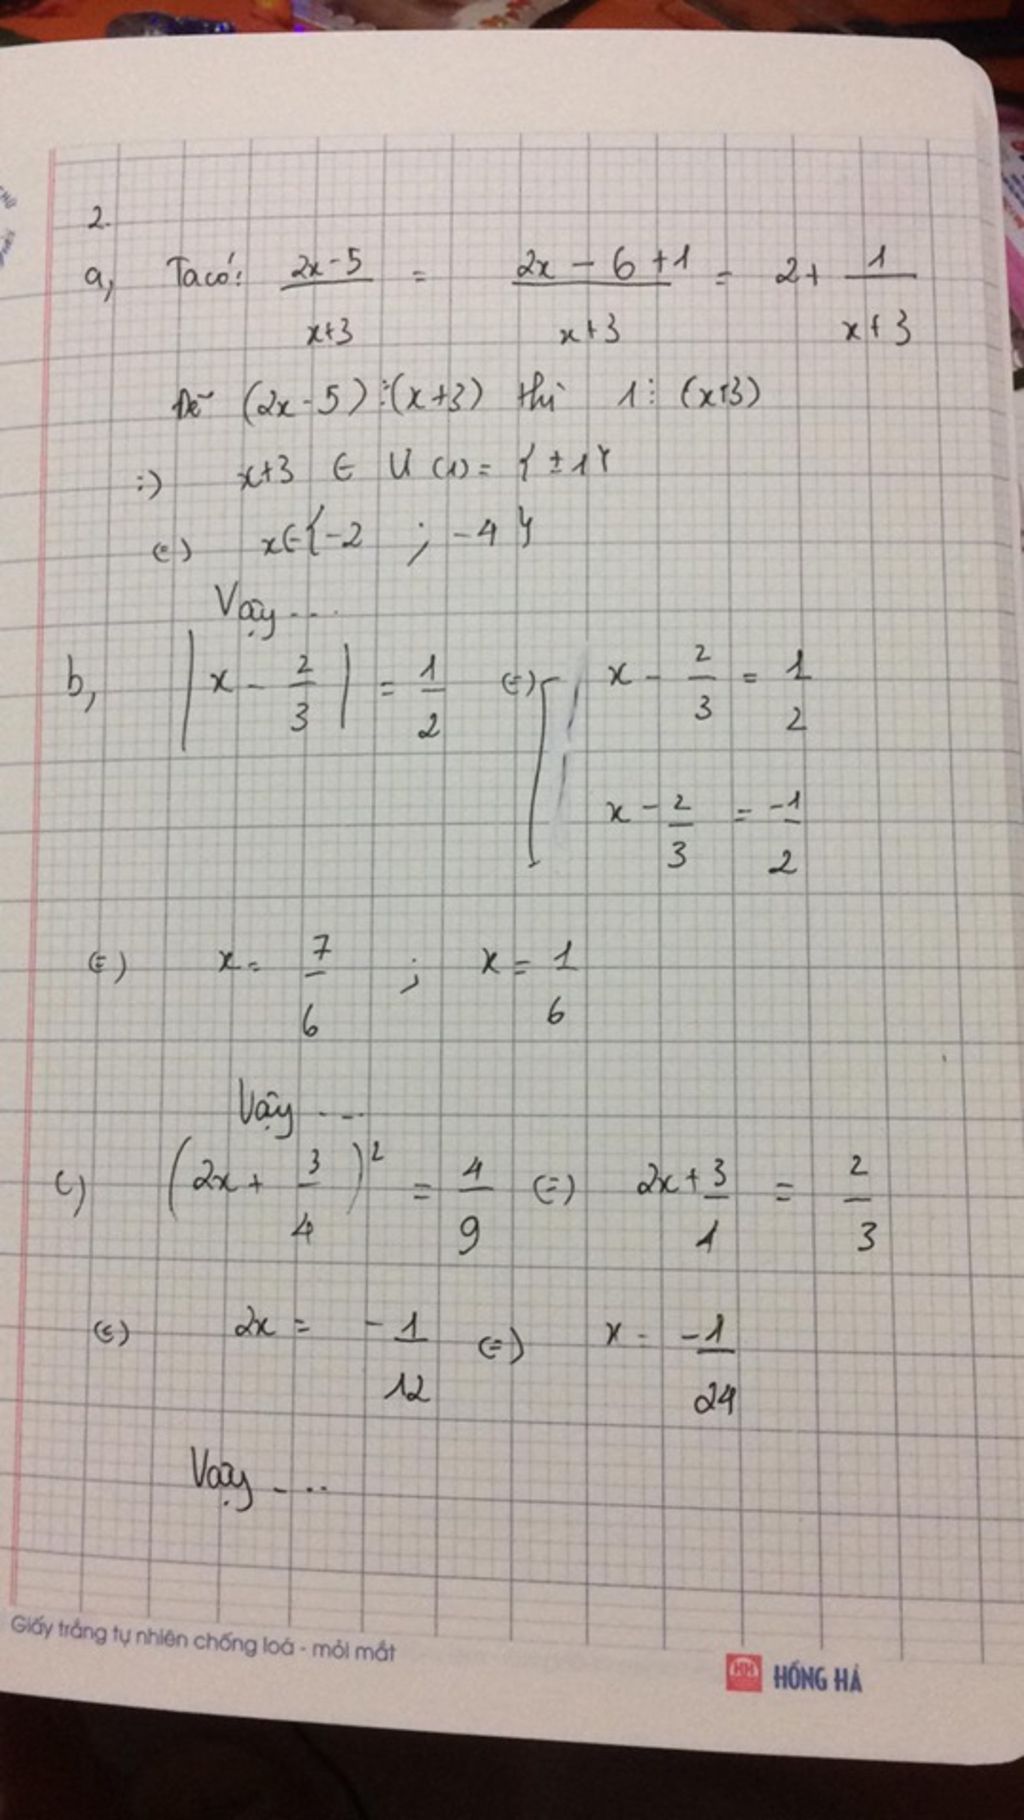 2.
a, Ta có: (2x-5)/(x+3) = (2x - 6 + 1)/(x+3) = 2 + 1/(x+3)
Để (2x-5)⋮(x+3) thì 1⋮(x+3)
=) x+3 ∈ Ư(1) = {±1}
(=) x∈{-2 ; -4}
Vậy ....
b, |x - 2/3| = 1/2 (=) [ x - 2/3 = 1/2
x - 2/3 = -1/2
(=) x = 7/6 ; x = 1/6
Vậy ...
c) (2x + 3/4)² = 4/9 (=) 2x + 3/1 = 2/3
(=) 2x = -1/12 (=) x = -1/24
Vậy ....
Giấy trắng tự nhiên chống loá - mỏi mắt
HH HỒNG HÀ